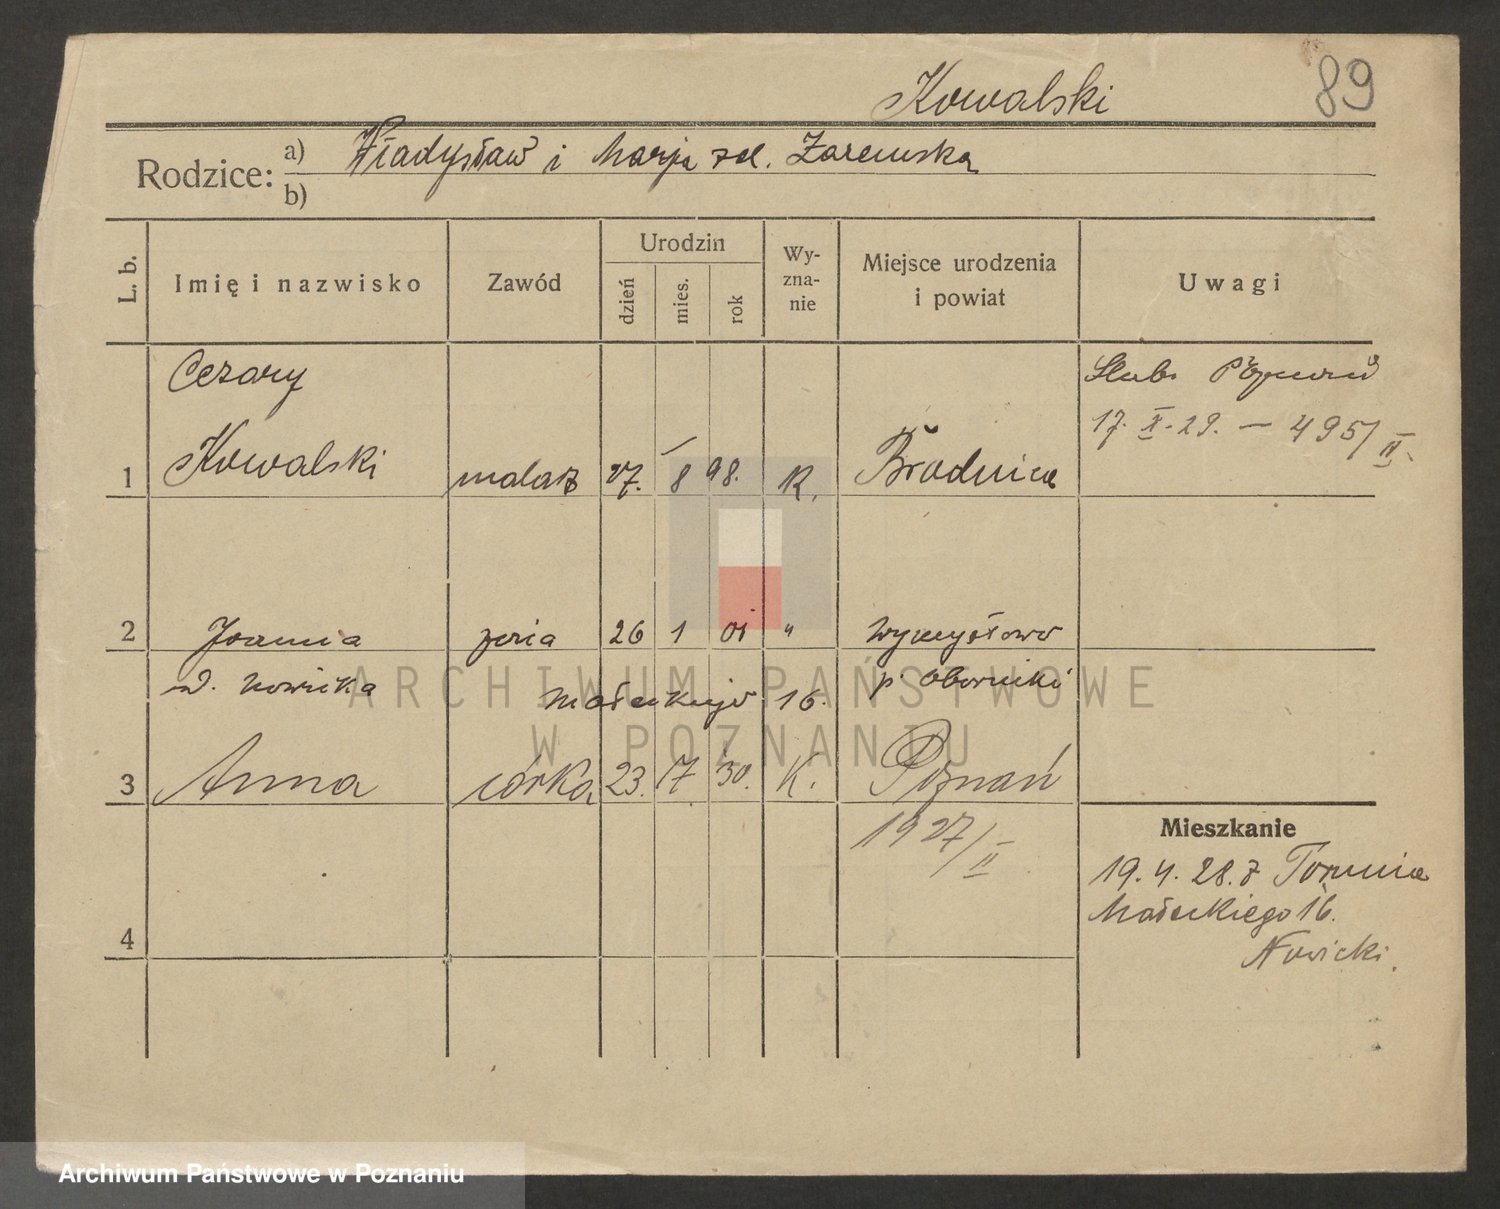 Kowalski
89
Rodzice: a) Władysław i Marja zd. Zaremska
b)
L. b.
Imię i nazwisko
Zawód
Urodzin
dzień
mies.
rok
Wy-
zna-
nie
Miejsce urodzenia
i powiat
Uwagi
Cezary
Ślub
17. X. 29. — 495/II.
1 Kowalski malarz 27. 8 98. K. Brodnica
2 Joanna 26 1 01 "
d. Nowicka Małeckiego 16. p. Oborniki
3 Anna córka 23. 17 30. K. Poznań
1927/II
4
Mieszkanie
19. 4. 28. z Torunia
Małeckiego 16.
Nowicki.
ARCHIWUM PAŃSTWOWE
W POZNANIU
Archiwum Państwowe w Poznaniu